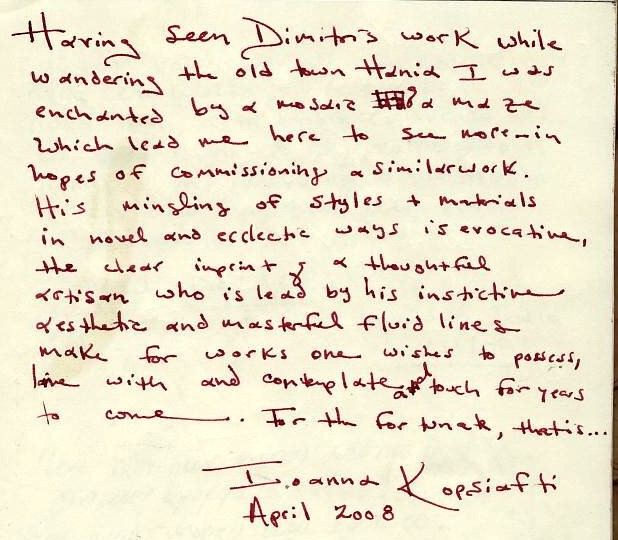 Having seen Dimitri's work while
wandering the old town Hania I was
enchanted by a mosaic of a maze
which lead me here to see more – in
hopes of commissioning a similar work.
His mingling of styles + materials
in novel and ecclectic ways is evocative,
the clear inprint of a thoughtful
artisan who is lead by his instictive
aesthetic and masterful fluid lines
make for works one wishes to possess,
live with and contemplate and touch for years
to come. For the fortunate, that is...
Ioanna Kopsiafti
April 2008